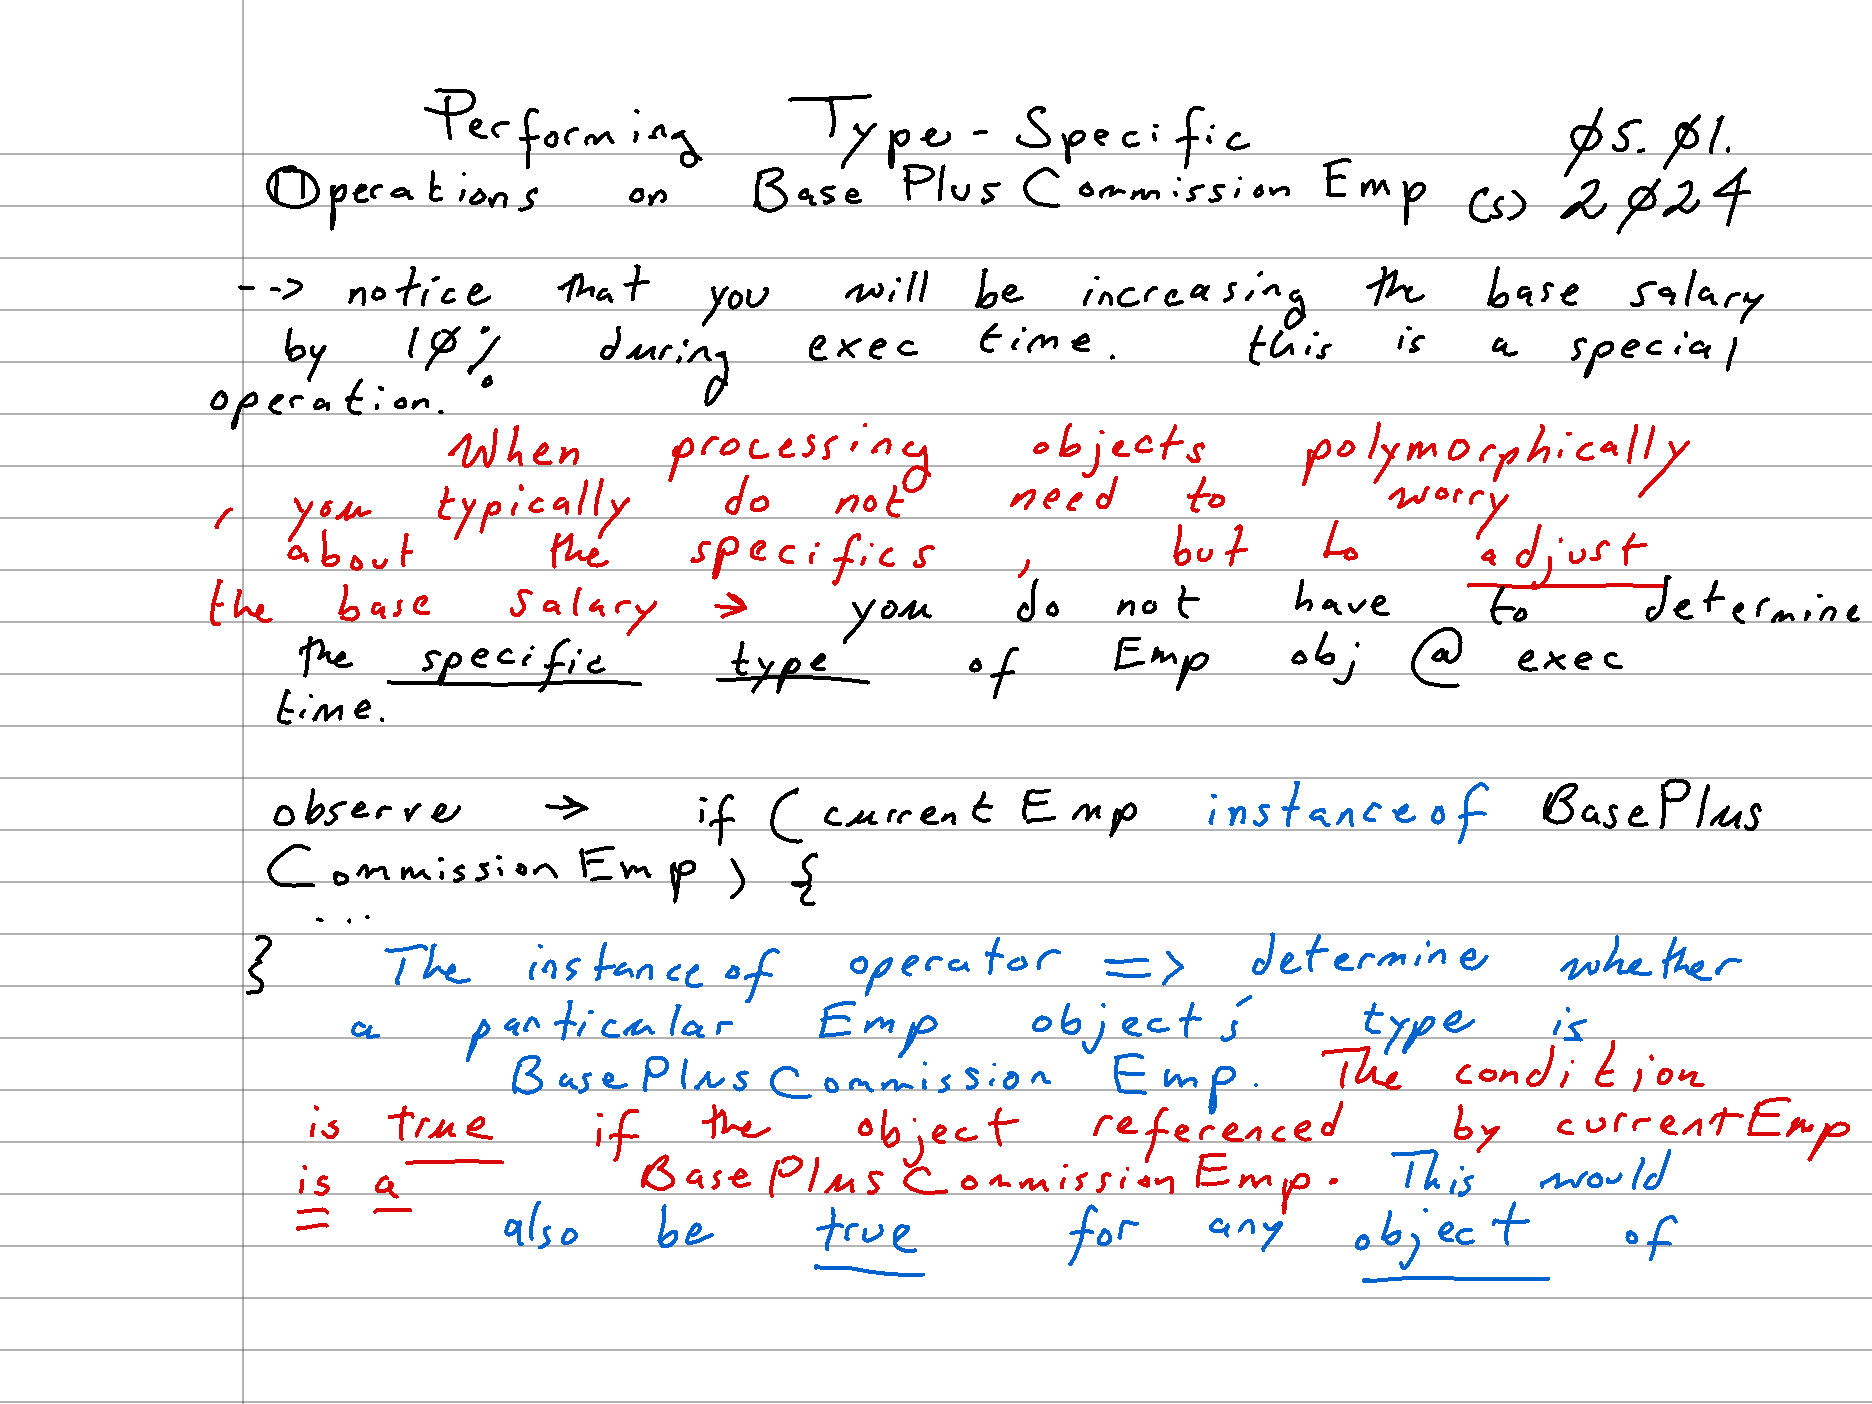 Performing Type-Specific Ø5. Ø1.
Operations on BasePlusCommissionEmp (s) 2Ø24
--> notice that you will be increasing the base salary
by 1Ø% during exec time. this is a special
operation.
When processing objects polymorphically
, you typically do not need to worry
about the specifics, but to adjust
the base salary → you do not have to determine
the specific type of Emp obj @ exec
time.
observe → if (currentEmp instanceof BasePlus
CommissionEmp) {
...
} The instanceof operator => determine whether
a particular Emp object's type is
BasePlusCommissionEmp. The condition
is true if the object referenced by currentEmp
is a BasePlusCommissionEmp. This would
also be true for any object of